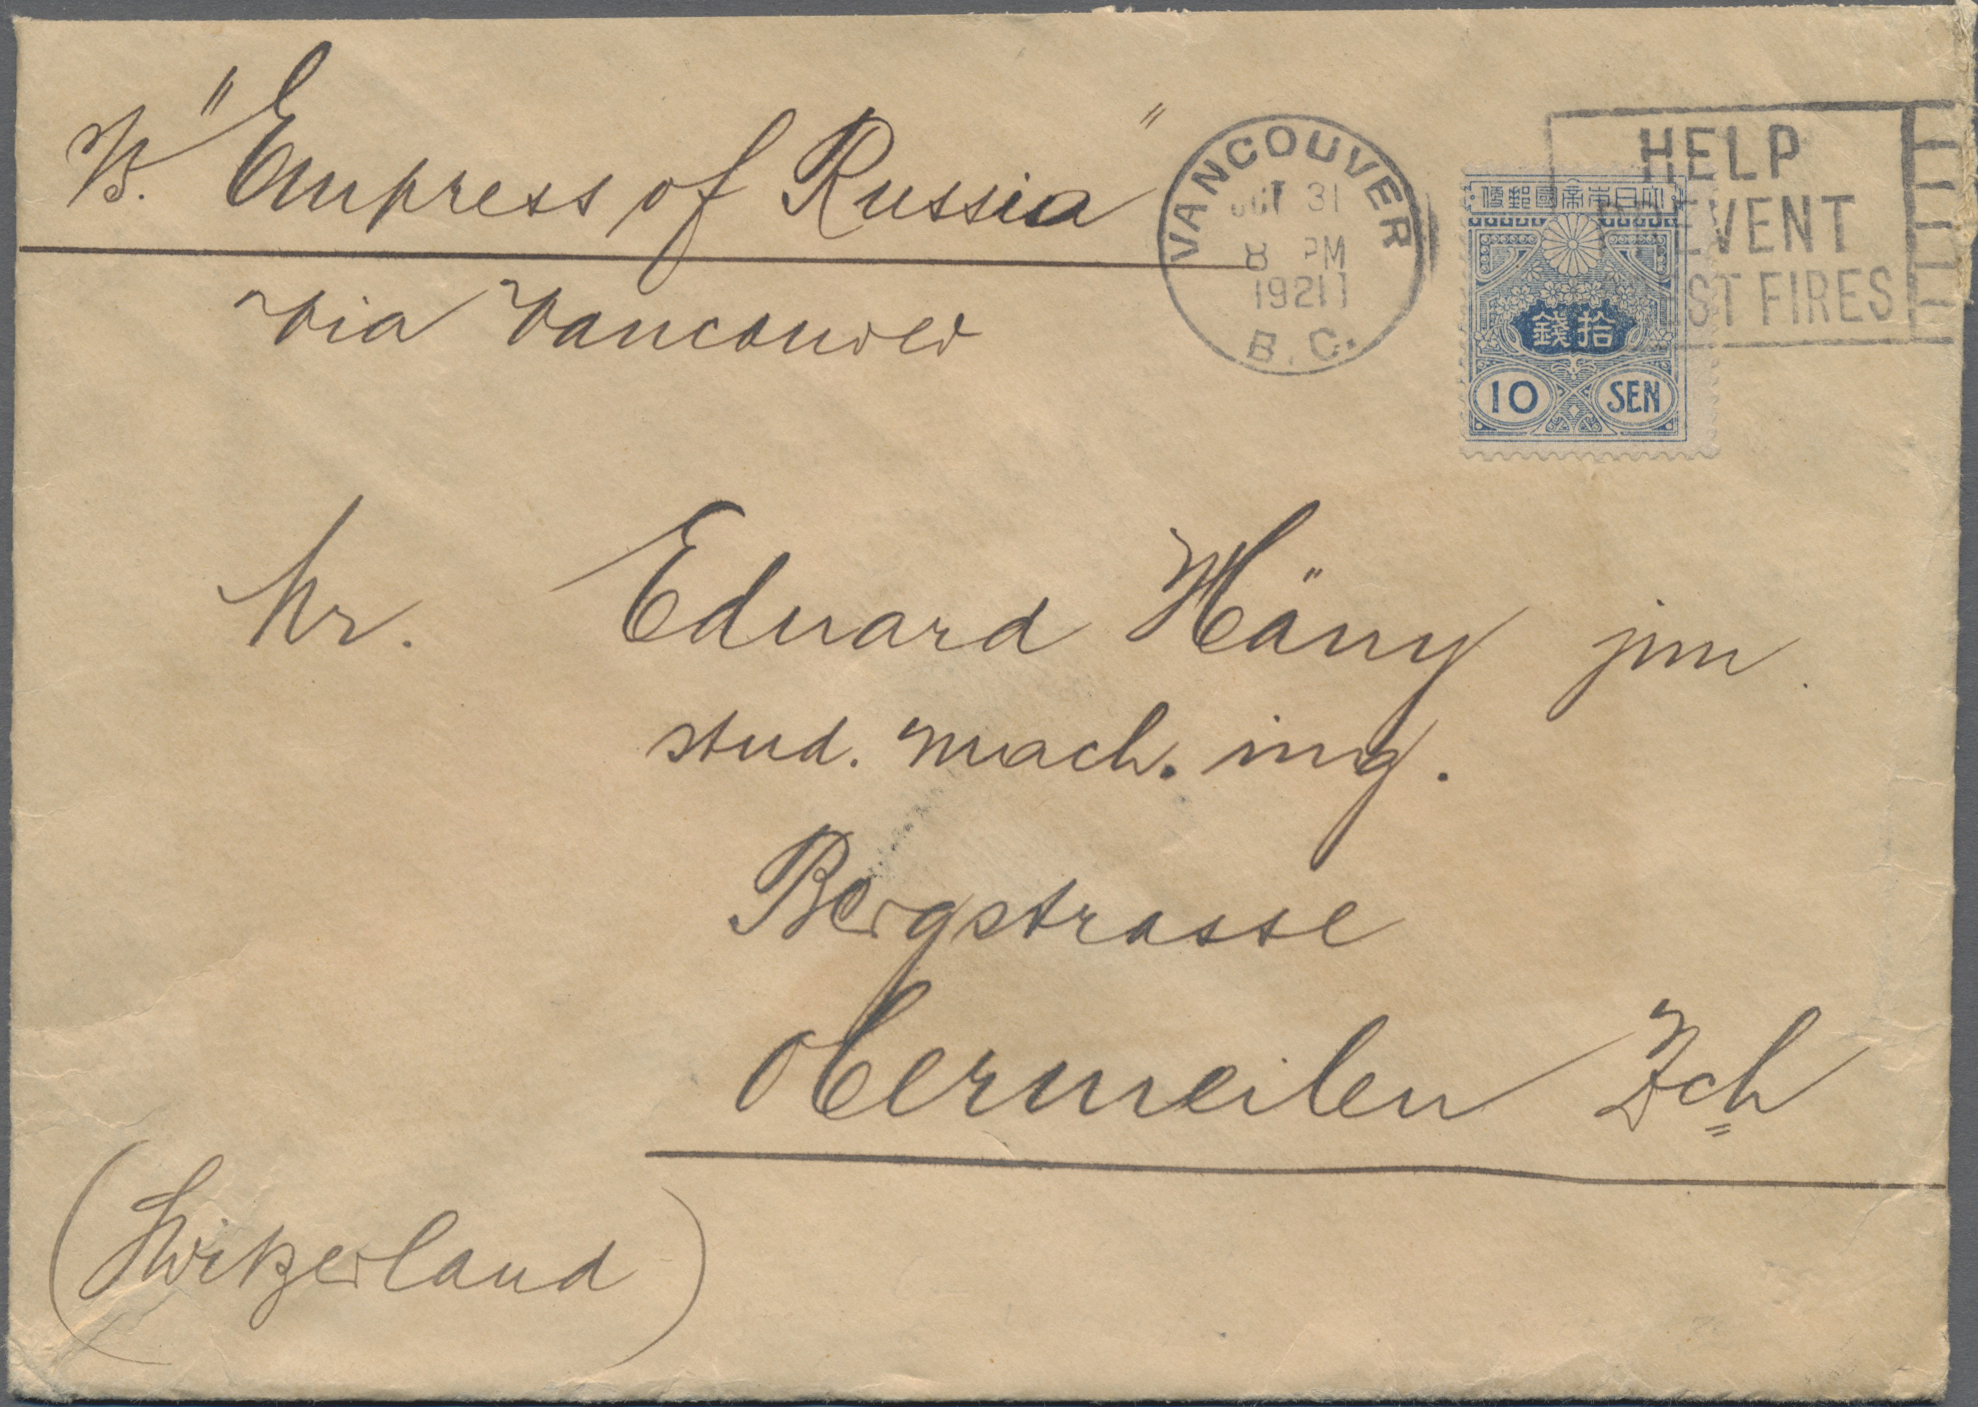 "Empress of Russia"
via Vancouver
VANCOUVER
OCT 31
8 PM
1921
B.C.
HELP
PREVENT
ST FIRES
大日本帝國郵便
拾錢
10 SEN
Mr. Eduard Häny jun.
stud. mach. ing.
Bergstrasse
Obermeilen Zch
(Switzerland)